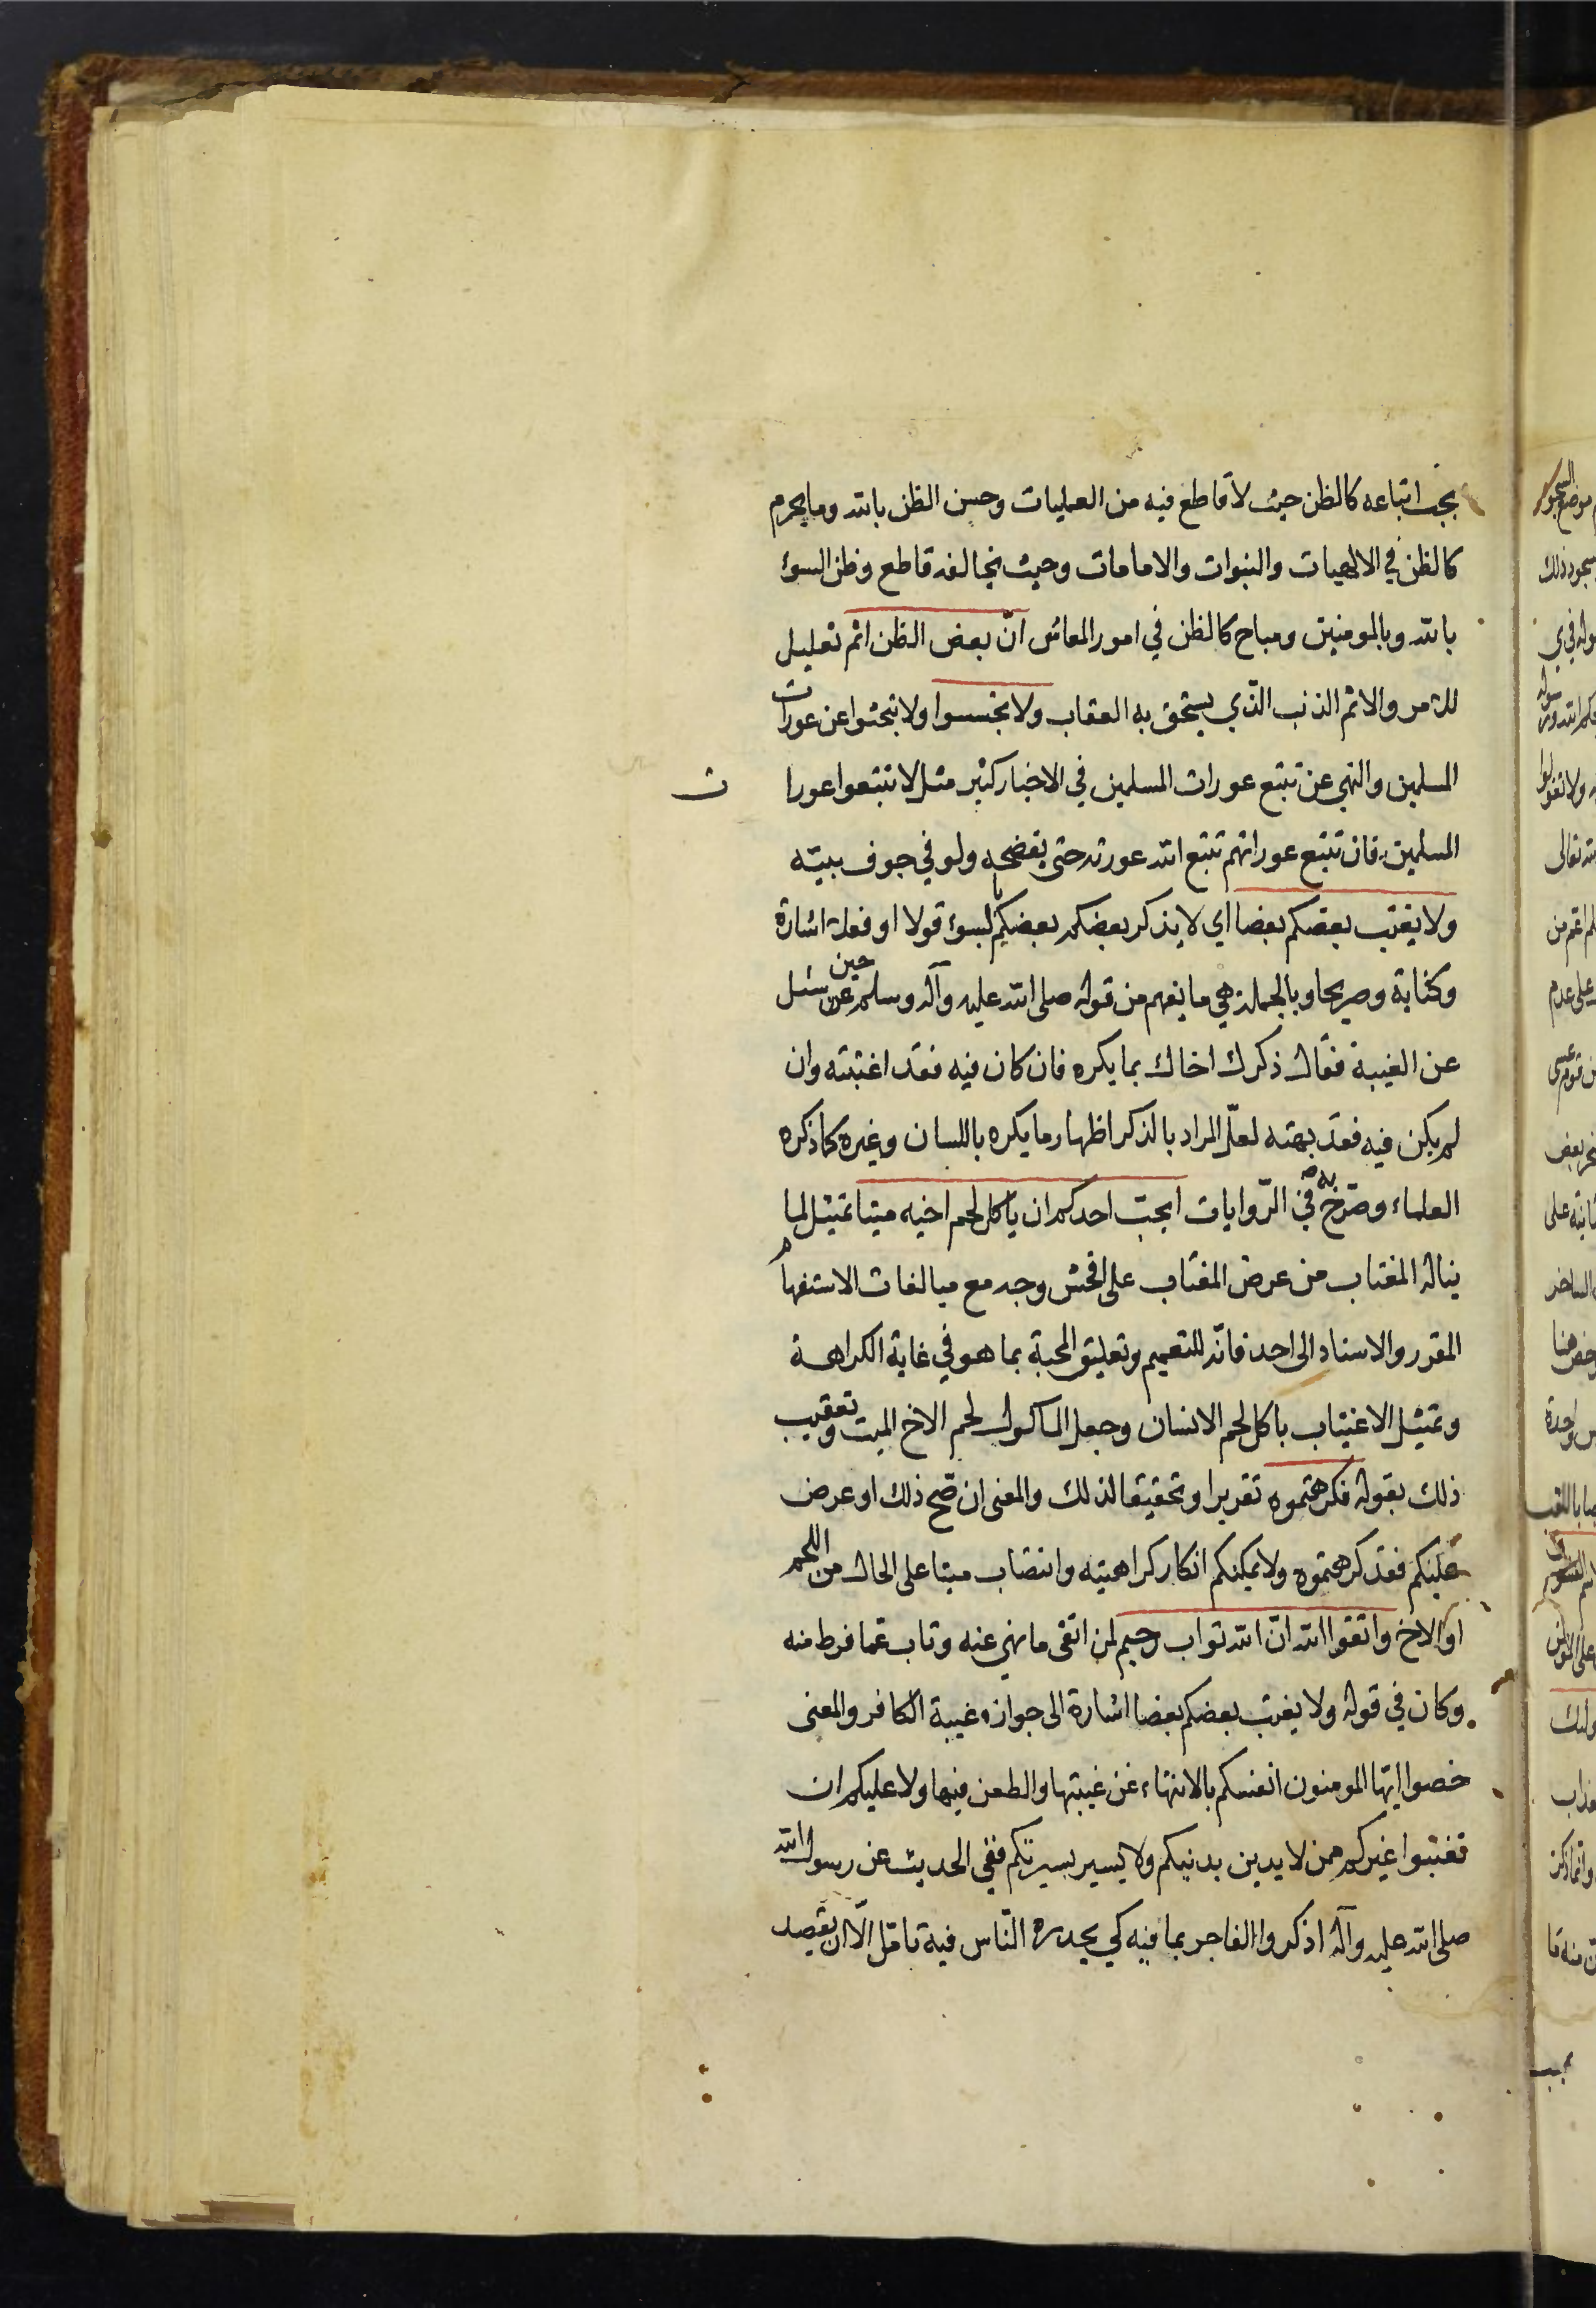 يجب اتباعه كالظن حيث لا قاطع فيه من العمليات وحسن الظن بالله وما يحرم
كالظن في الالهيات والنبوات والامامات وحيث يخالفه قاطع وظن السوء
بالله وبالمومنين ومباح كالظن في امور المعاش انّ بعض الظن اثم تعليل
للامر والاثم الذنب الّذي يستحق به العقاب ولا تجسسوا ولا تبحثوا عن عورات
المسلمين والنهي عن تتبع عورات المسلمين في الاخبار كثير مثل لا تتبعوا عورا ت
المسلمين فان تتبع عوراتهم تتبع الله عورته حتى يفضحه ولو في جوف بيته
ولا يغتب بعضكم بعضا اي لا يذكر بعضكم بعضكم بالسوء قولا او فعلا اشارة
وكناية وصريحا وبالجملة هي ما يفهم من قوله صلى الله عليه وآله وسلم حين سئل
عن الغيبة فقال ذكرك اخاك بما يكره فان كان فيه فقد اغتبته وان
لم يكن فيه فقد بهته لعلّ المراد بالذكر اظهار ما يكره باللسان وغيره كما ذكره
العلماء وصرّح به في الرّوايات ايحبّ احدكم ان ياكل لحم اخيه ميتا تمثيل لما
يناله المغتاب من عرض المغتاب على افحش وجه مع مبالغات الاستفهام
المقرر والاسناد الى احد فانّه للتعميم وتعليق المحبة بما هو في غاية الكراهة
وتمثيل الاغتياب باكل لحم الانسان وجعل الماكول لحم الاخ الميت وتعقيب
ذلك بقوله فكرهتموه تقريرا وتحقيقا لذلك والمعنى ان صّح ذلك او عرض
عليكم فقد كرهتموه ولا يمكنكم انكار كراهيته وانتصاب ميتا على الحال من اللحم
او الاخ واتقوا الله انّ الله تواب رحيم لمن اتقى ما نهي عنه وتاب عمّا فرط منه
وكان في قوله ولا يغتب بعضكم بعضا اشارة الى جواز غيبة الكافر والمعنى
خصوا ايّها المومنون انفسكم بالانتهاء عن غيبتها والطعن فيها ولا عليكم ان
تغتبوا غيركم ممن لا يدين بدنيكم ولا يسير بسيرتكم ففي الحديث عن رسول الله
صلى الله عليه وآله اذكروا الفاجر بما فيه كي يحدره النّاس فيه تامّل الّا ان يقصد